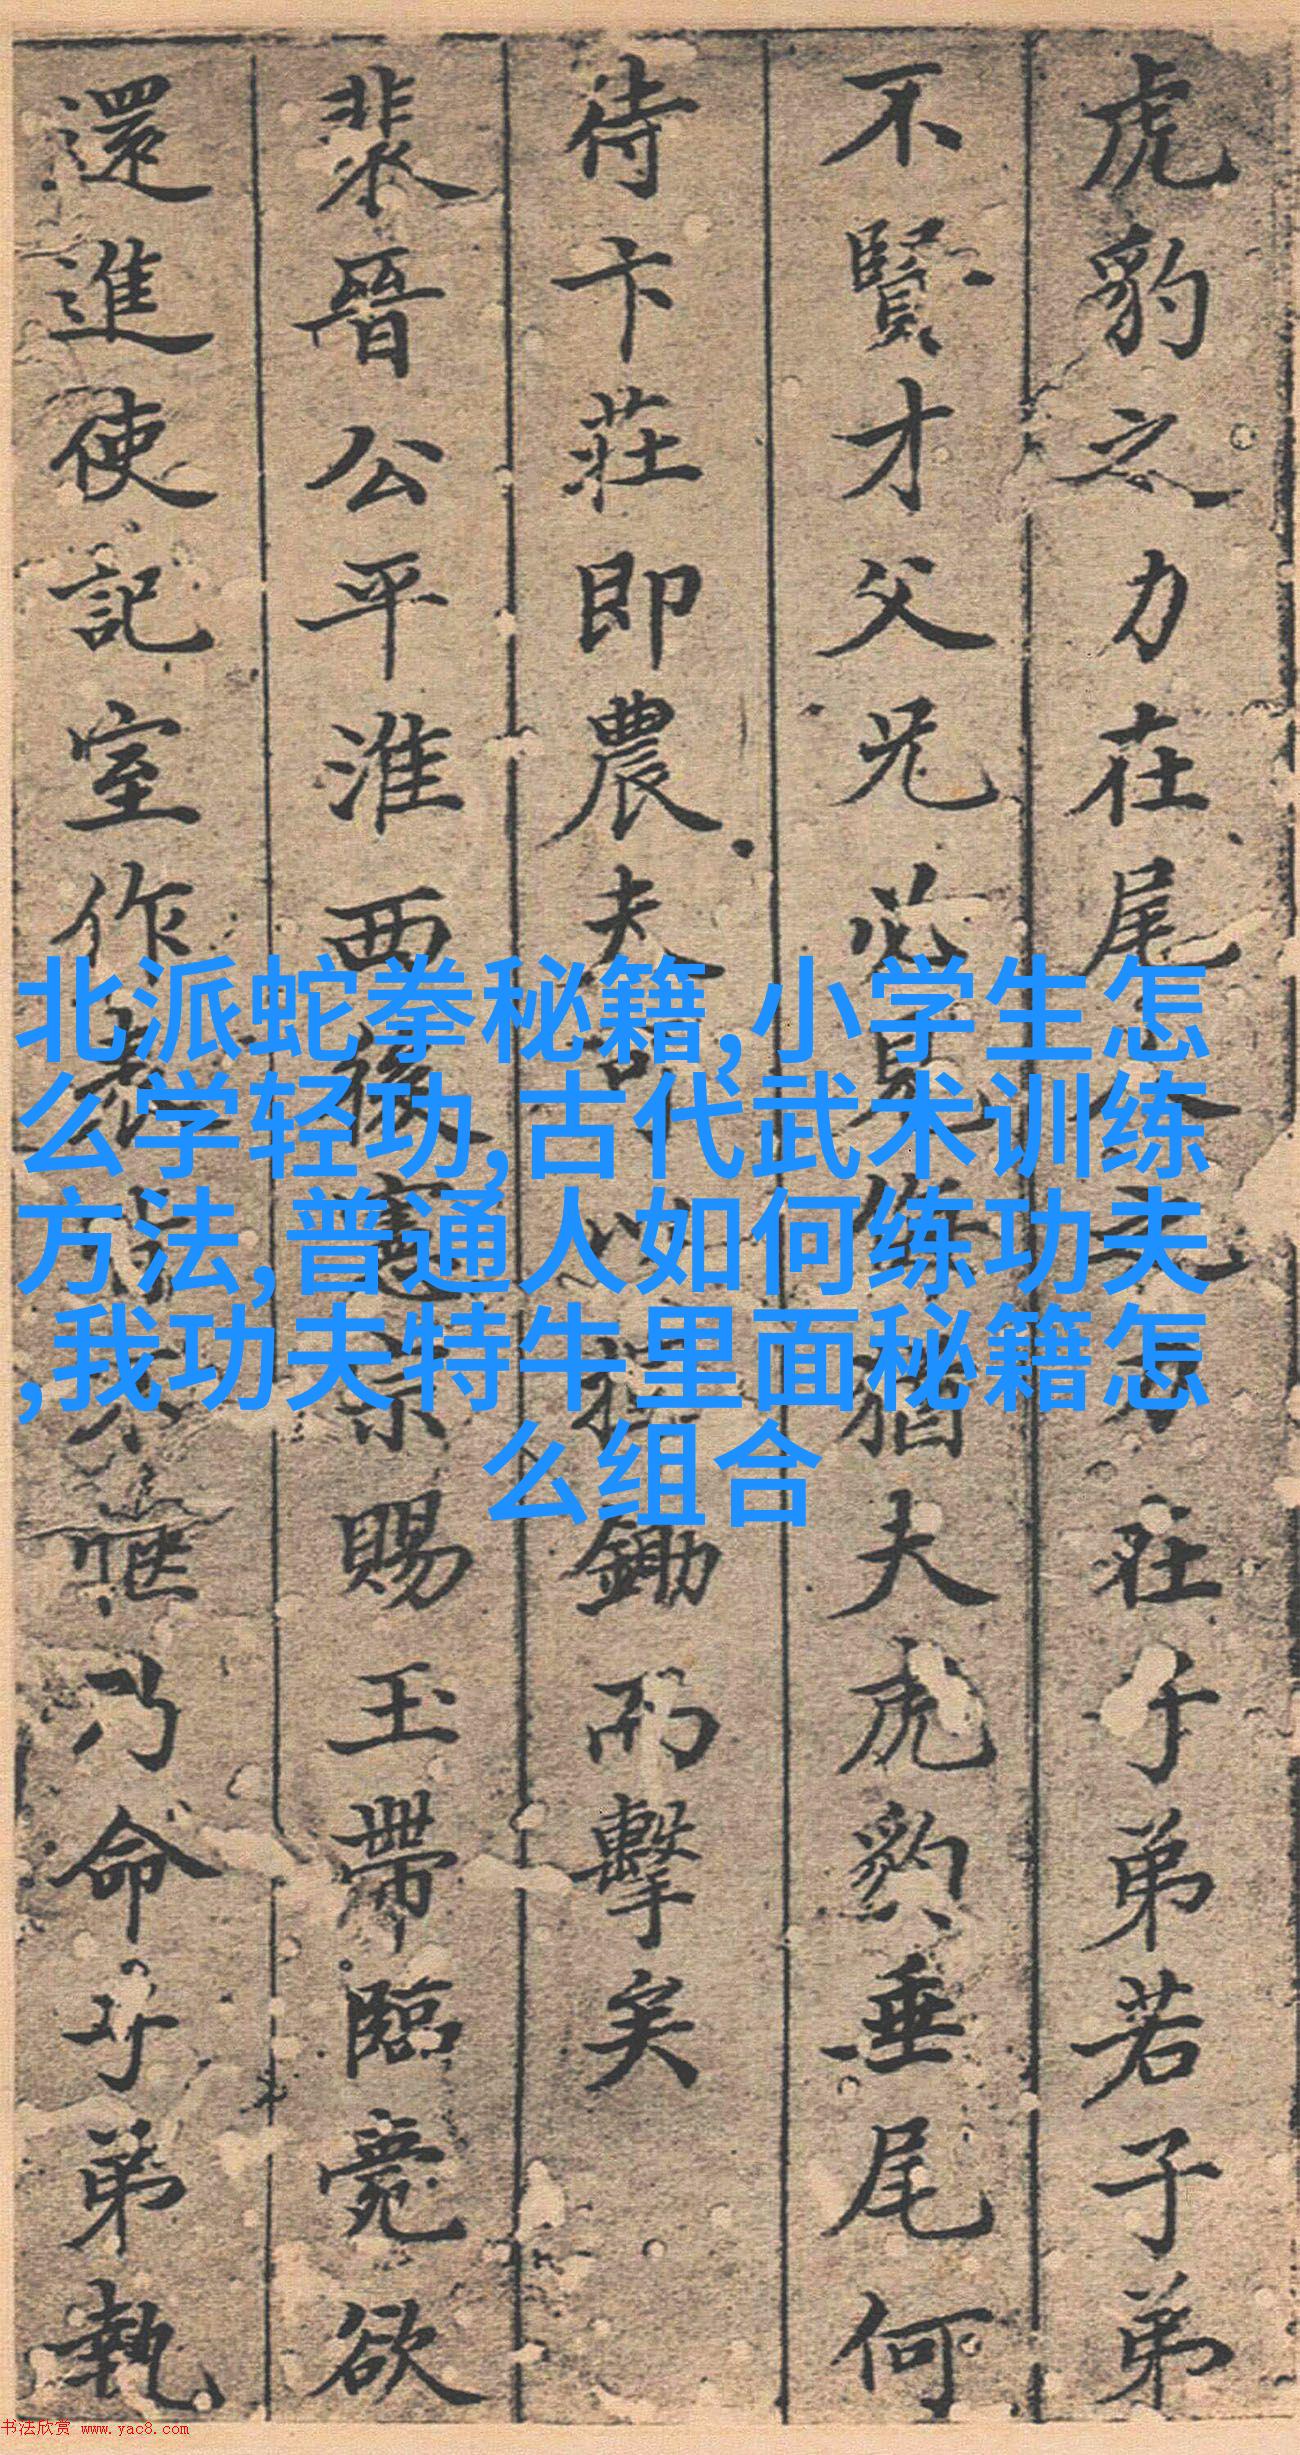 虎豹之力在尾人之力在子弟若子弟
不賢才父兄必見催猶夫虎豹垂尾何
待卞莊即農夫可以挂鋤而擊矣
裴晉公平淮西後憲宗賜玉帶臨薨欲
還進使記室作表皆不愜乃命子弟執
北派蛇拳秘籍,小学生怎
么学轻功,古代武术训练
方法,普通人如何练功夫
,我功夫特牛里面秘籍怎
么组合
书法欣赏 www.yac8.com